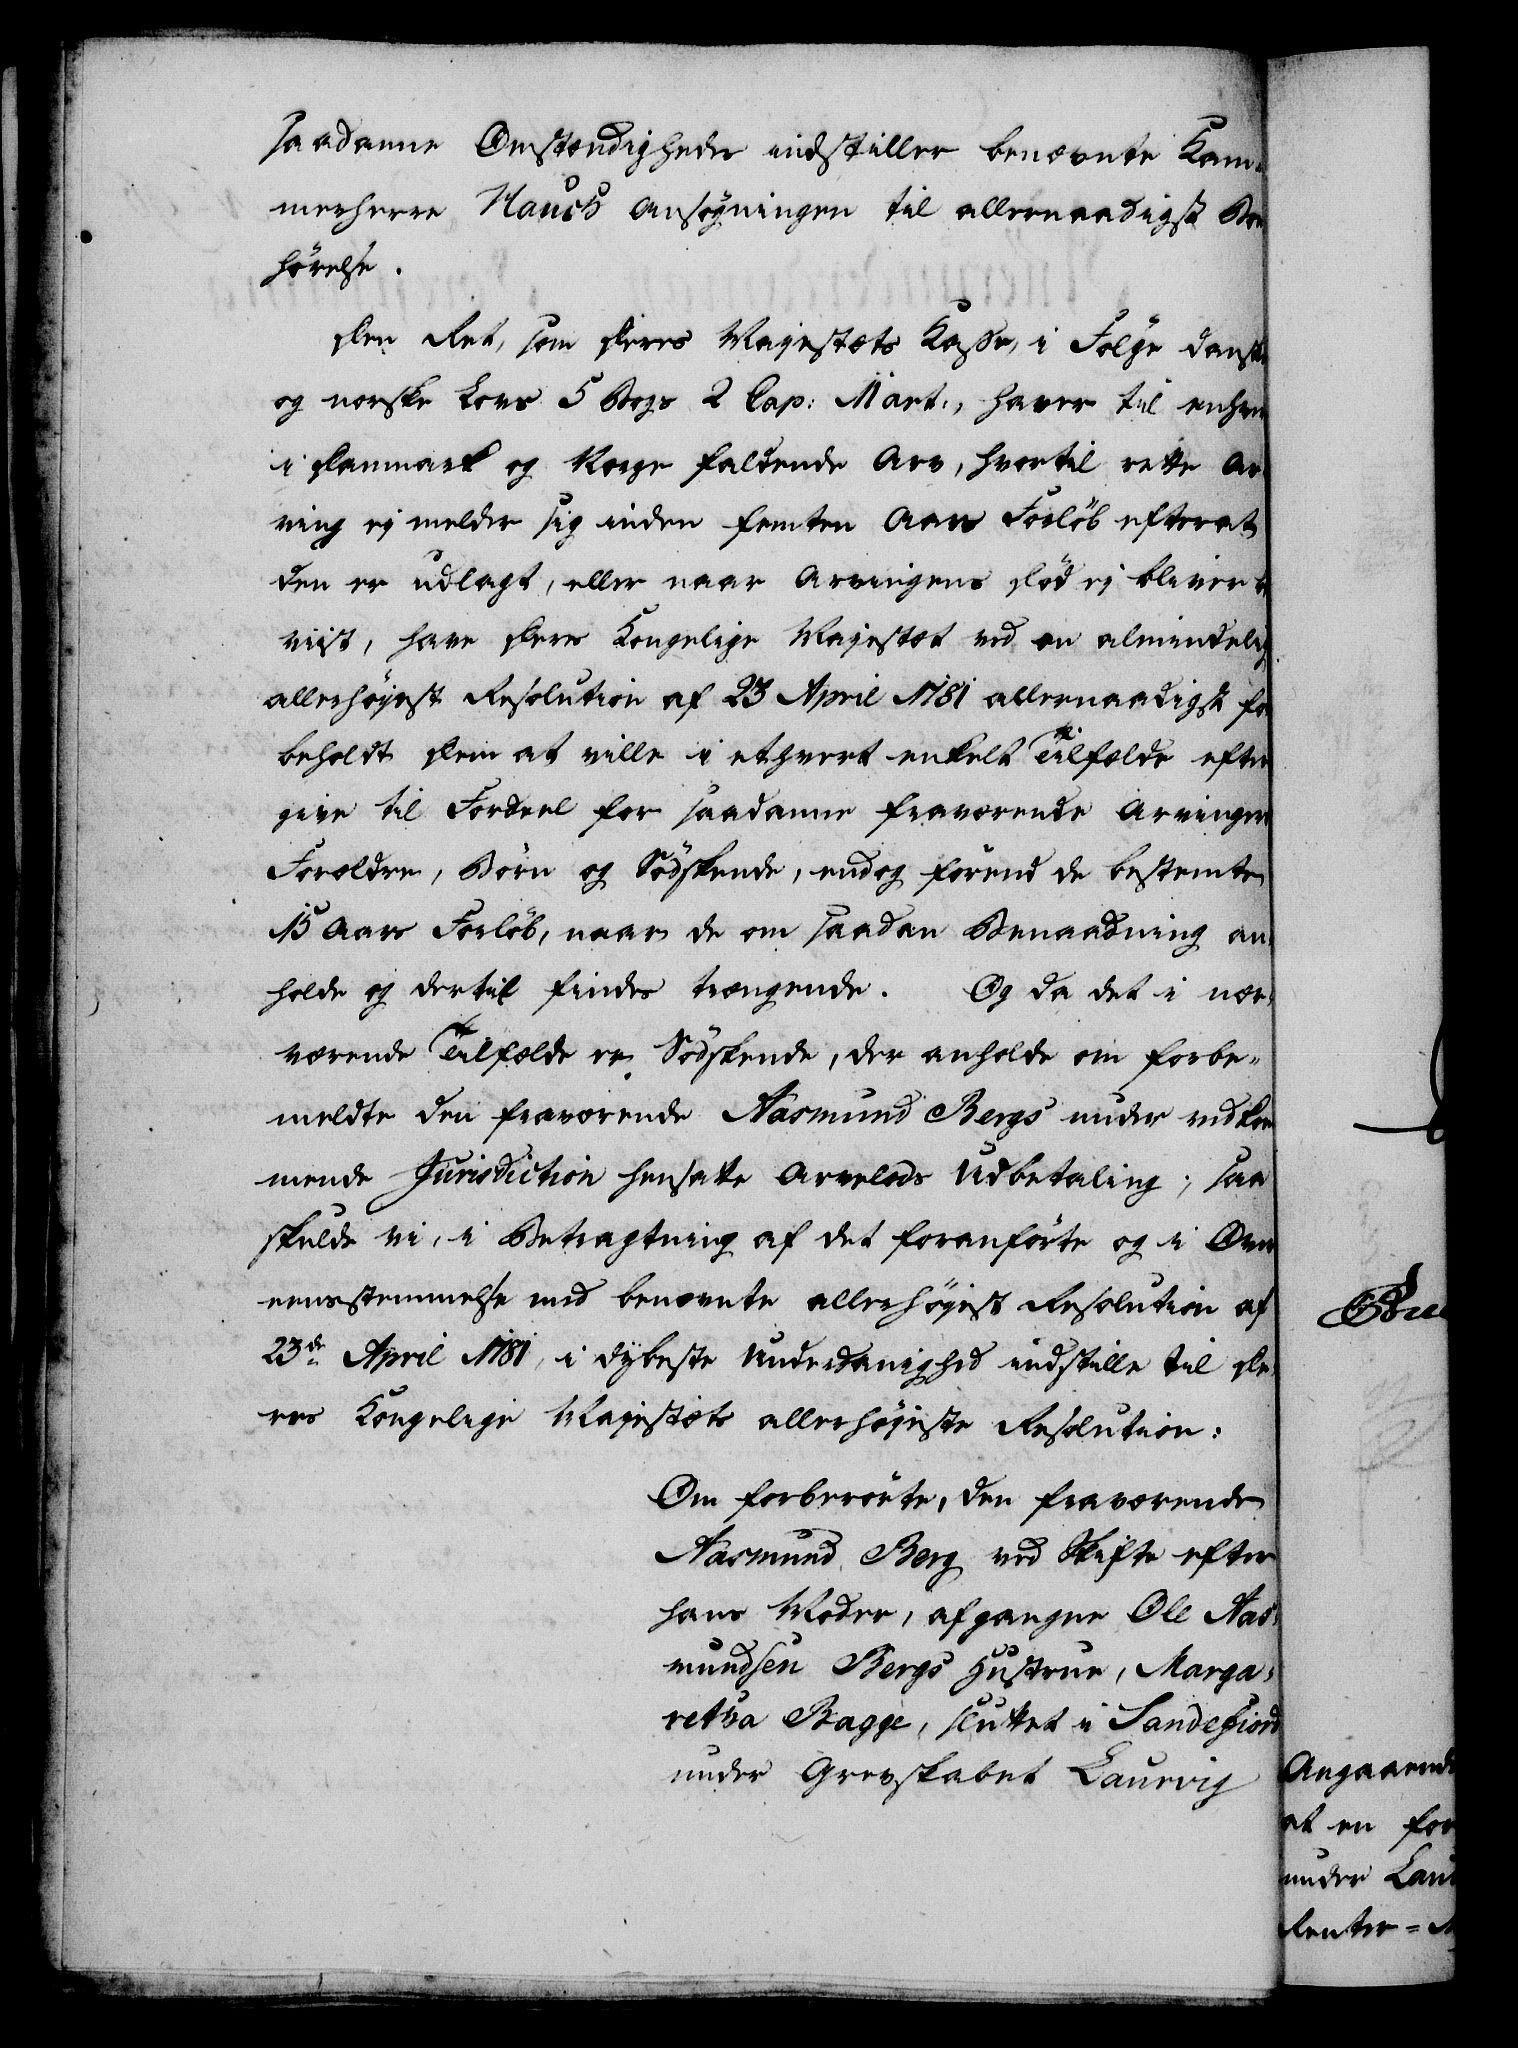 saadanne Omstændigheder indstiller benævnte Kam-
merherre Hauch Ansøgningen til allernaadigst Bøn
hørelse.
Den Ret, som Deres Majestæts Kasse, i Følge danske
og norske Lovs 5 Bogs 2 Cap: 11 Art:, haver til enhver
i Danmark og Norge faldende Arv, hvortil rette Ar-
ving ej melder sig inden femten Aars Forløb efterat
den er udlagt, eller naar Arvingens Død ej bliver be
viist, have Deres Kongelige Majestæt ved en almindelig
allerhøyest Resolution af 23 April 1781 allernaadigst for
beholdt Dem at ville i ethvert enkelt Tilfælde efter
give til Fordeel for saadanne fraværende Arvingers
Forældre, Børn og Södskende, endog förend de bestemte
15 Aars Forlöb, naar de om saadan Benaadning an-
holde og dertil findes trængende. Og da det i nær-
værende Tilfælde er Södskende, der anholde om forbe-
meldte den fraværende Aasmund Bergs under vedkom
mende Jurisdiction hensatte Arvelods Udbetaling; saa
skulde vi, i Betragtning af det foranförte og i Over
eensstemmelse med benævnte allerhöjest Resolution af
23de April 1781, i dybeste Underdanighed indstille til De-
res Kongelige Majestæts allerhöjeste Resolution:
Om forberörte, den fraværende
Aasmund Berg ved Skifte efter
hans Moder, afgangne Ole Aas-
mundsen Bergs Hustrue, Marga-
retha Bagge, sluttet i Sandefiord
under Grevskabet Laurvig
Angaaende
at en for
under Laur
Renter=